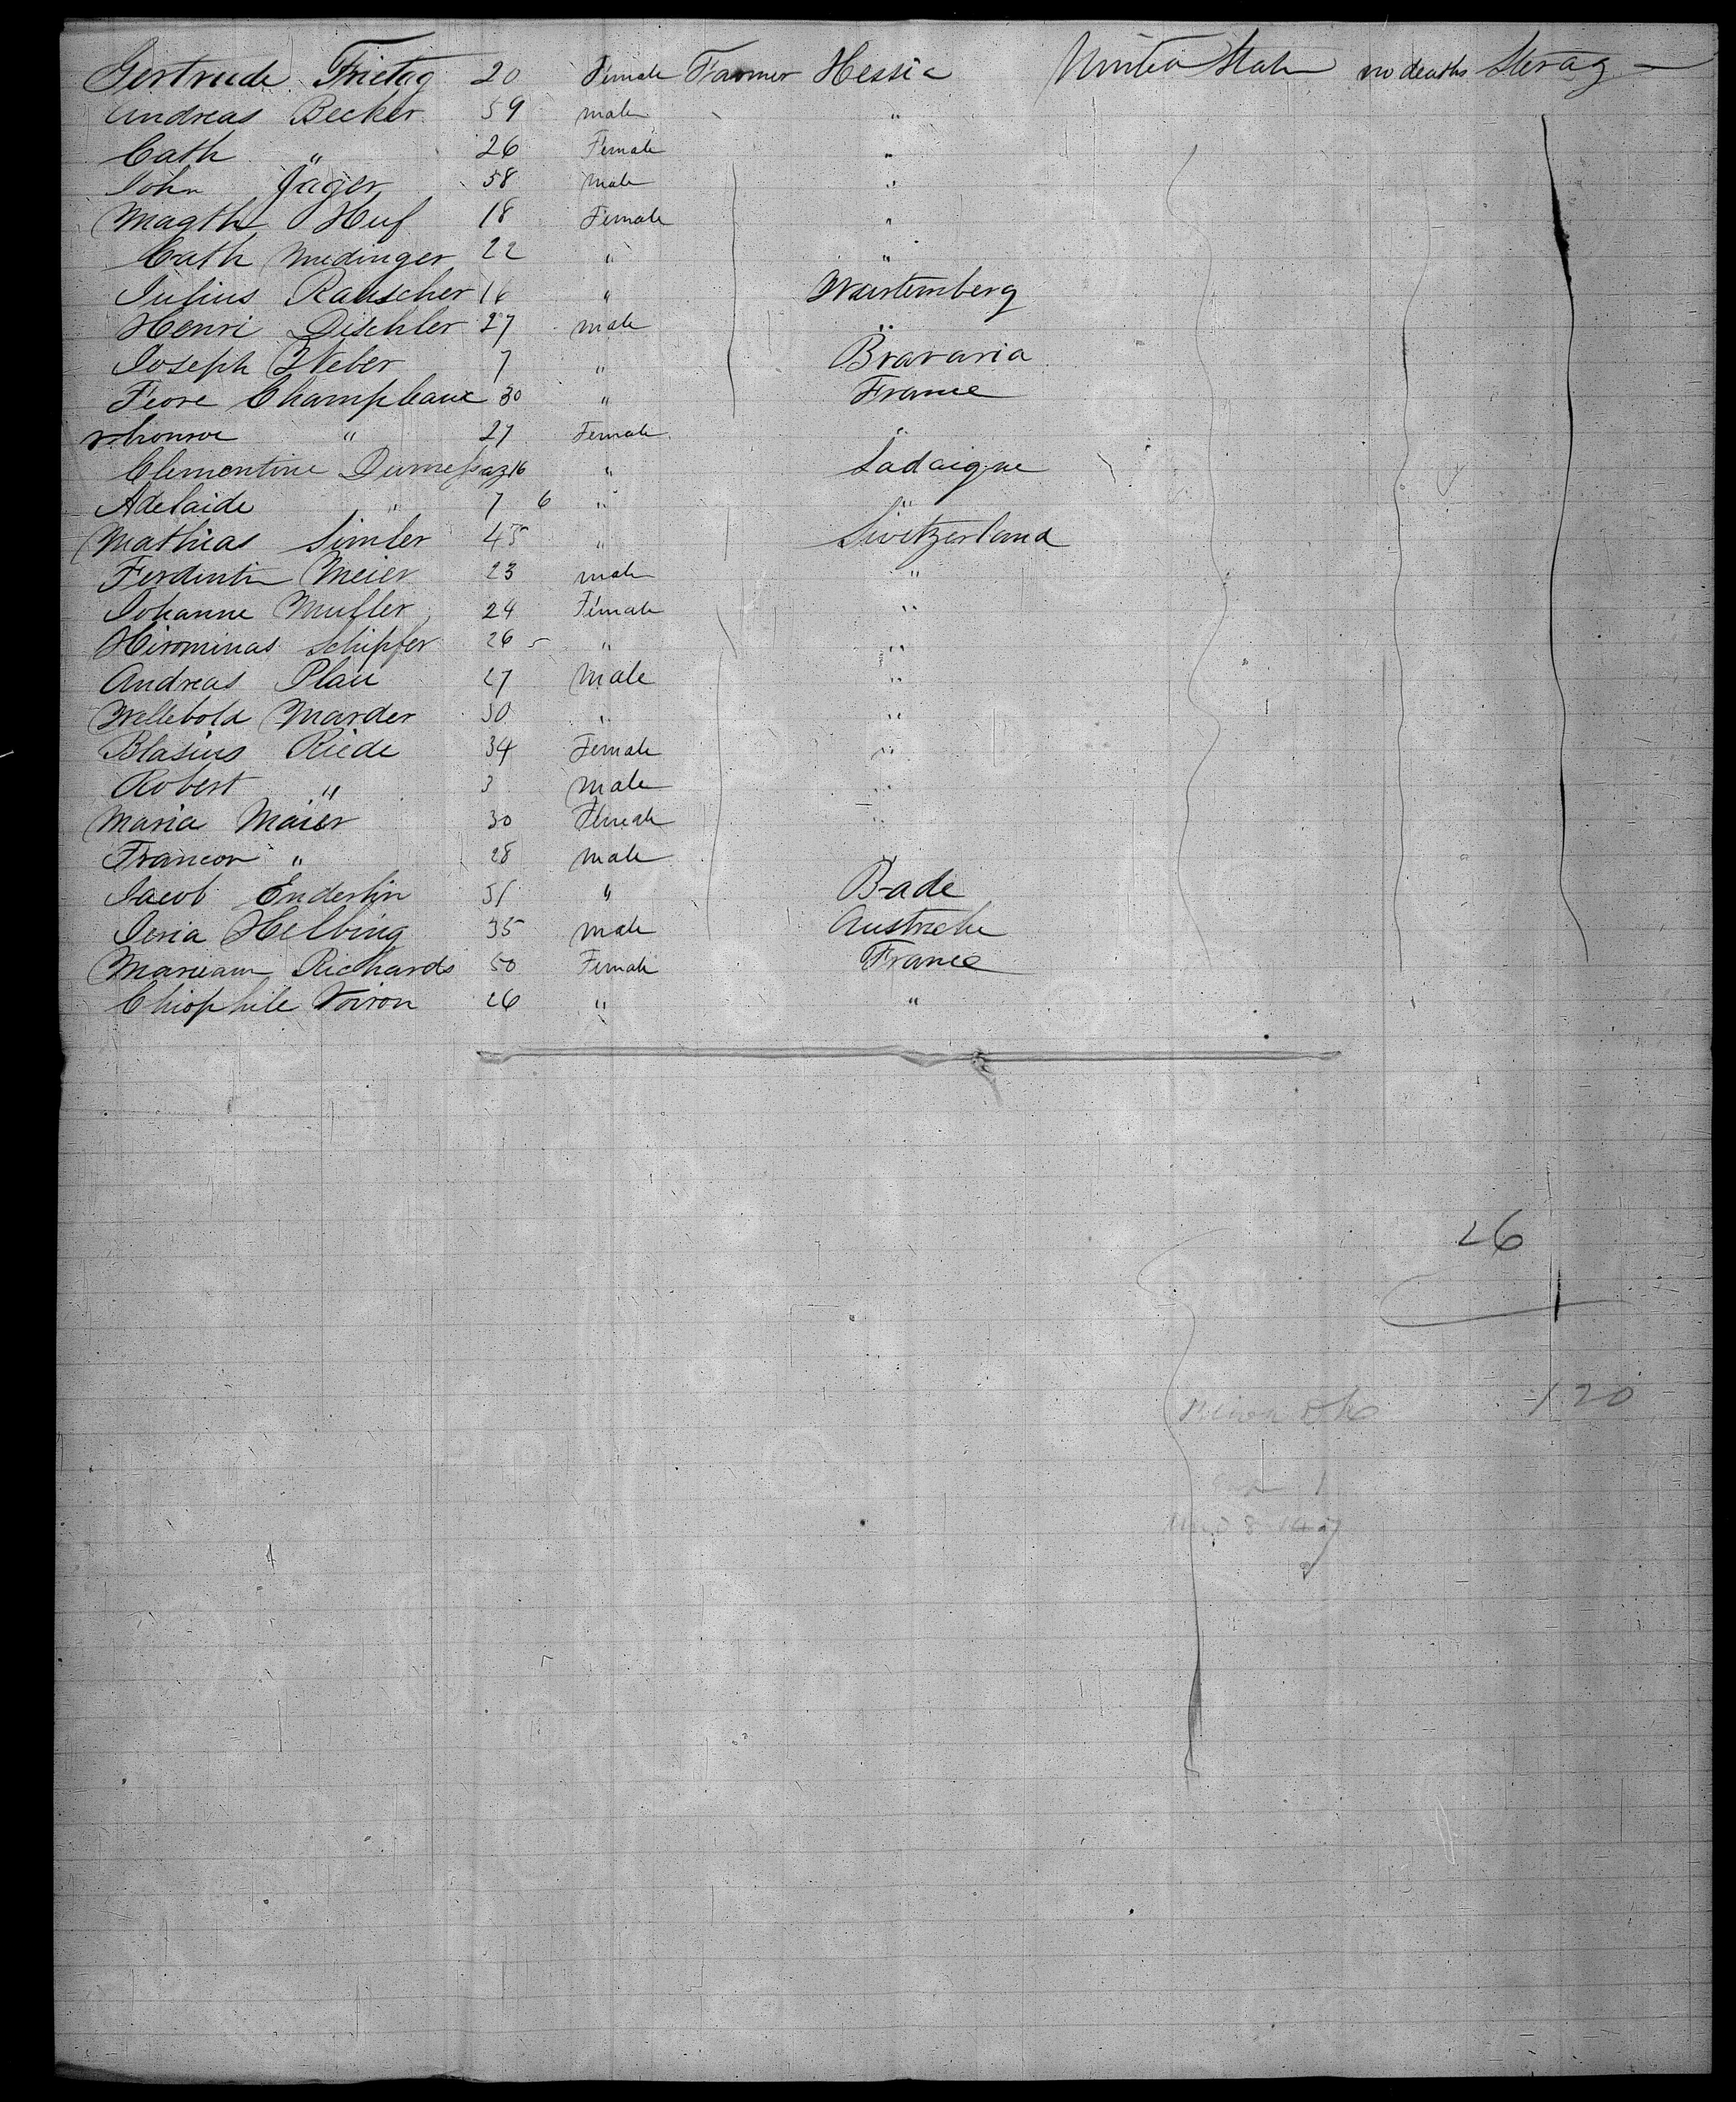 Gertrude Frietag 20 Female Farmer Hessia United State no deaths Sterag
Andreas Becker 59 male "
Cath " 26 Female "
John Jager 58 male "
Magth Huf 18 Female "
Cath Medinger 22 " "
Julius Rauscher 16 " Wurtemberg
Henri Dischler 27 male "
Joseph Weber 7 " Bravaria
Feore Champleaux 30 " France
" 27 Female "
Clementine 16 " Sadaigne
Adelaide " 7 6 " "
Mathias Simler 45 " Switzerland
Ferdintin Meier 23 male "
Johanne Muller 24 Female "
Hirominas Schipfer 26 " "
Andreas Plau 27 male "
Wellebold Marder 30 " "
Blasius Riede 34 Female "
Robert " 3 male "
Maria Maier 30 Female "
Francor " 28 male "
Jacob Enderlin 51 " Bade
Jeria Helbing 35 male Austriche
Richards 50 Female France
Chiophile Voiron 26 " "
26
120